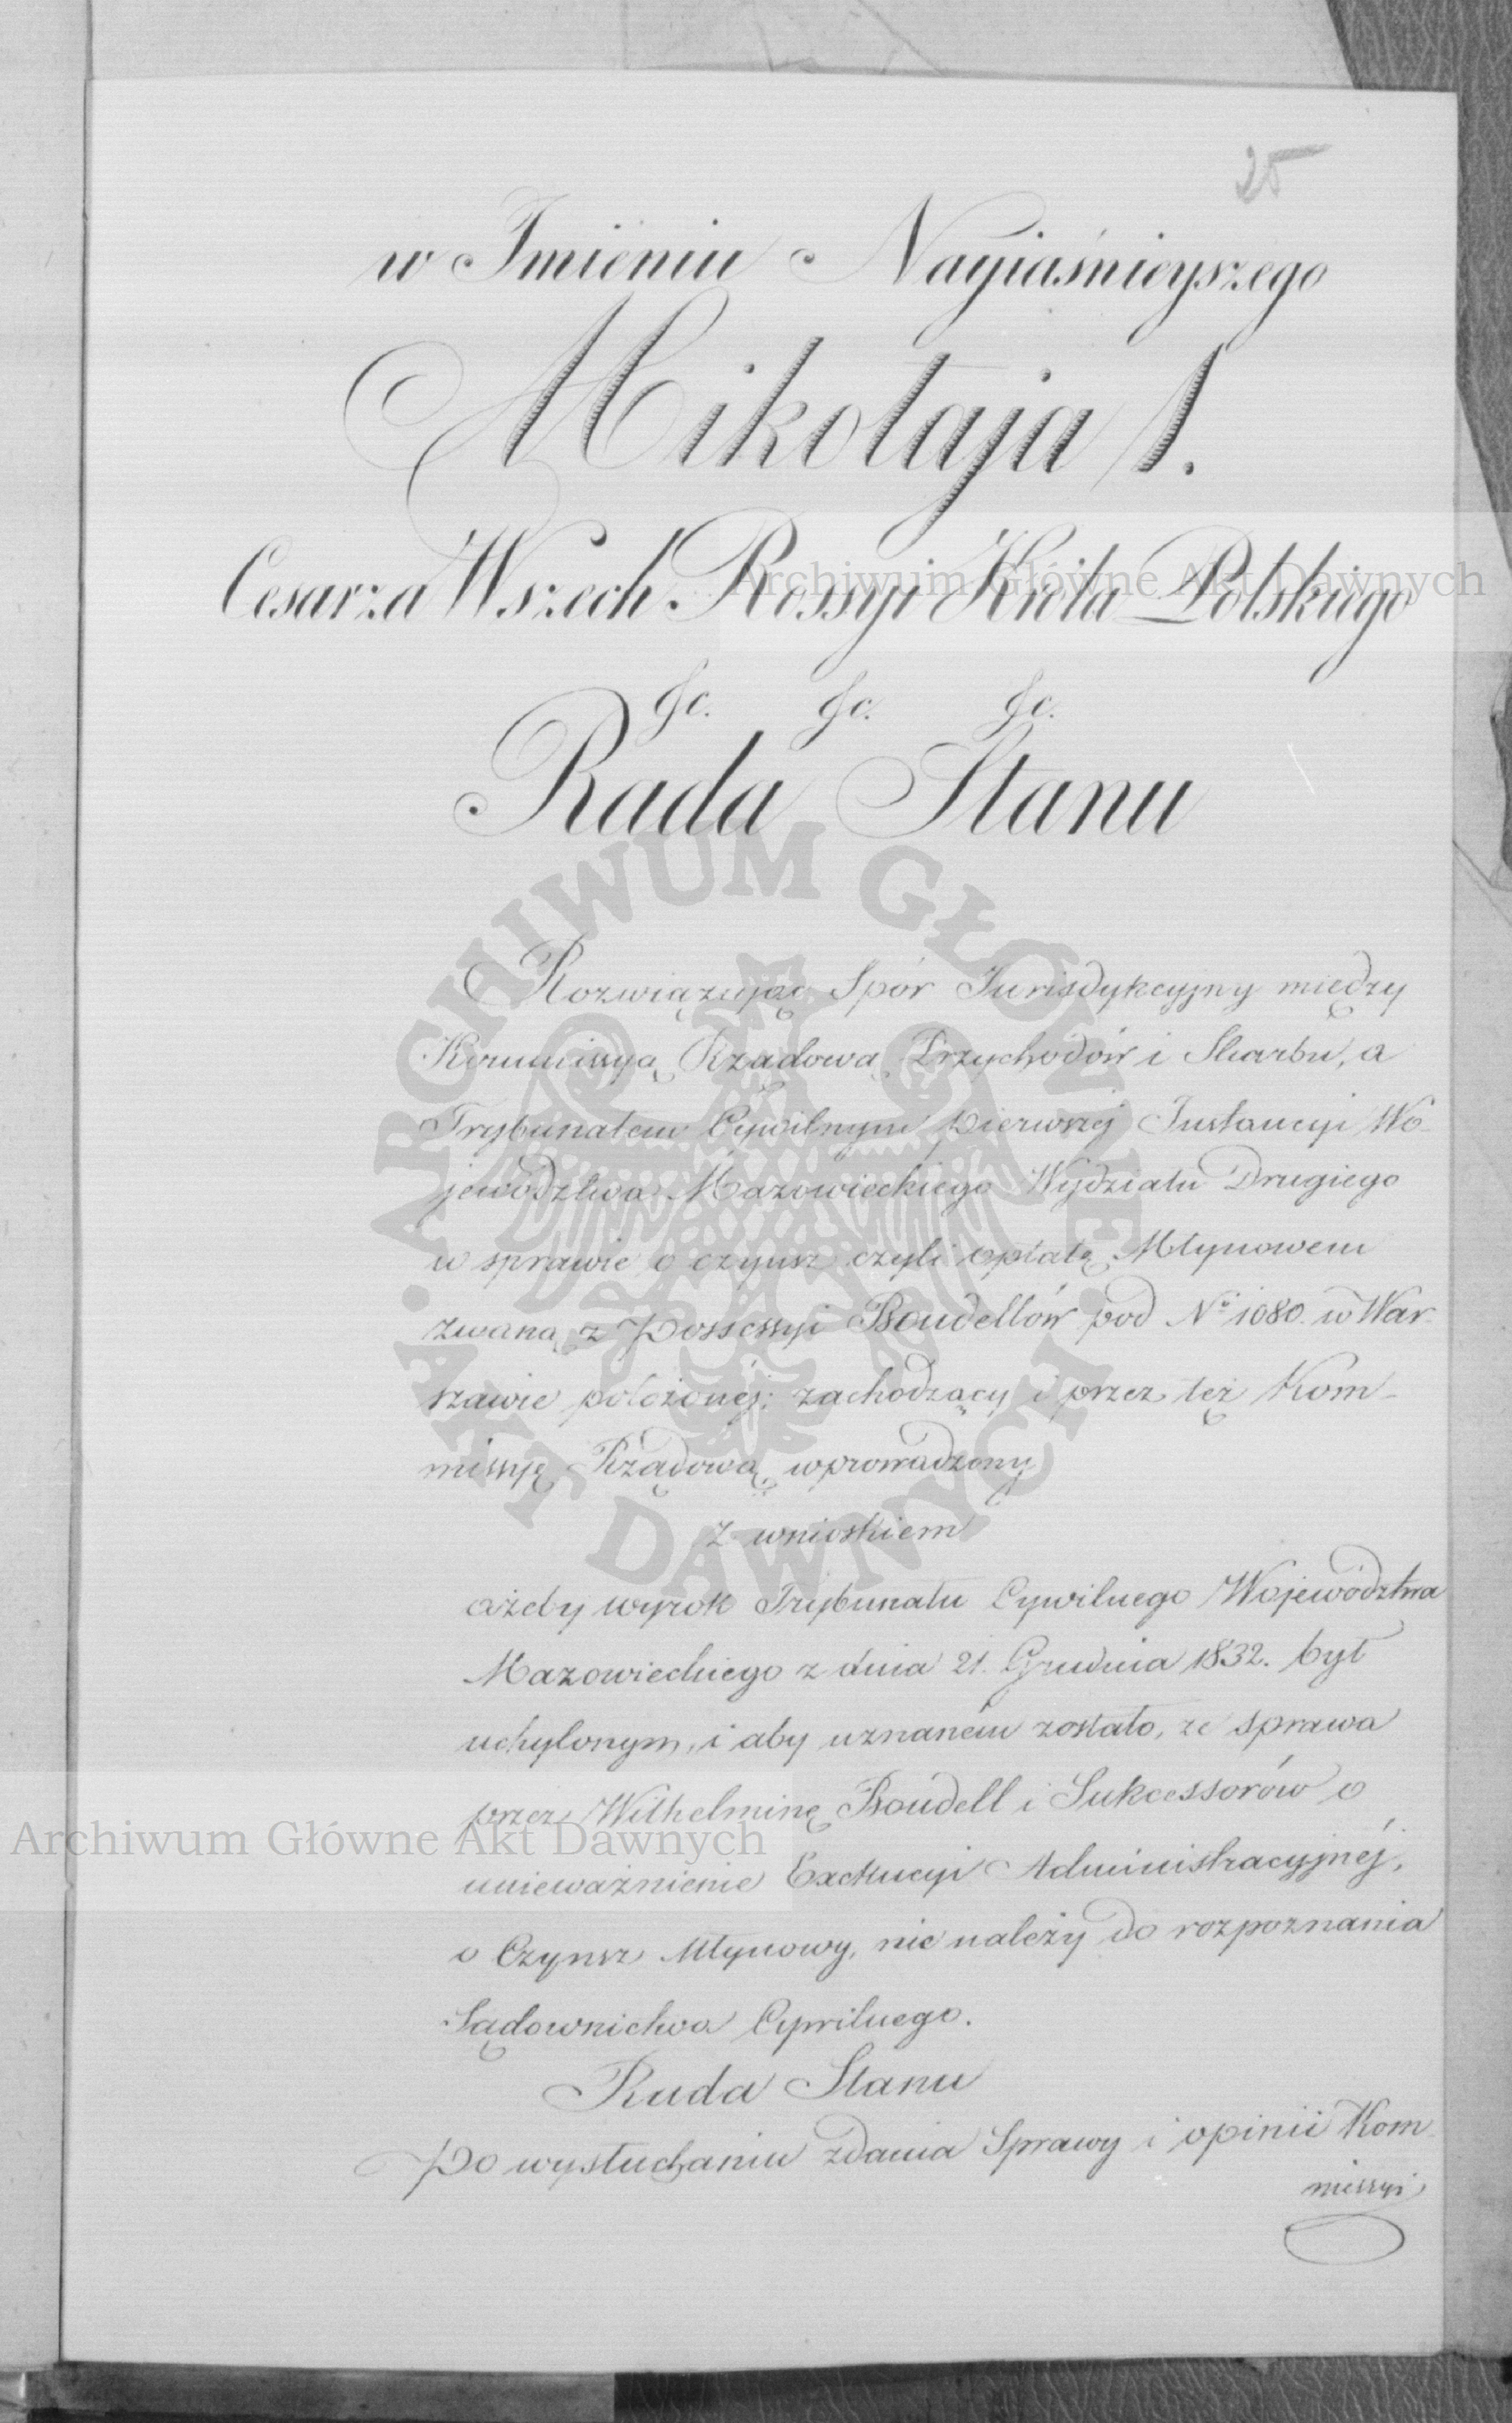 25
w Imieniu Nayiaśnieyszego
Mikołaja I.
Cesarza Wszech Rossyi Króla Polskiego
&c. &c. &c.
Rada Stanu
Rozwiązując Spór Jurisdykcyjny między
Kommissyą Rządową Przychodów i Skarbu, a
Trybunałem Cywilnym pierwszej Instancyi Wo-
jewództwa Mazowieckiego Wydziału Drugiego
w sprawie o czynsz czyli opłatę Młynowem
zwaną z Possessyi Boudellów pod No 1080. w War-
szawie położonej; zachodzący i przez też Kom-
missyę Rządową wprowadzony
z wnioskiem
ażeby wyrok Trybunału Cywilnego Województwa
Mazowieckiego z dnia 21. Grudnia 1832. był
uchylonym, i aby uznaném zostało, że sprawa
przez Wilhelminę Boudell i Sukcessorów o
unieważnienie Exekucyi Administracyjnéj,
o Czynsz Młynowy, nie należy do rozpoznania
Sądownictwa Cywilnego.
Rada Stanu
Po wysłuchaniu zdania Sprawy i opinii Kom-
missyi
Archiwum Główne Akt Dawnych
ARCHIWUM GŁÓWNE AKT DAWNYCH
Archiwum Główne Akt Dawnych